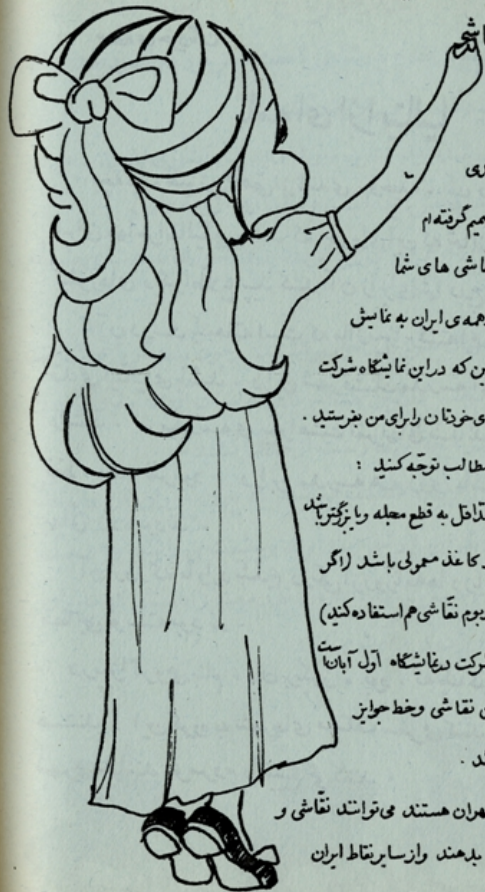 نقاشی
دی
میم گرفته ام
اشی های شما
همه ی ایران به نمایش
ین که در این نمایشگاه شرکت
ی خودتان را برای من بفرستید .
مطالب توجه کنید :
حداقل به قطع مجله و یا بزرگتر باشد
کاغذ معمولی باشد (اگر
بوم نقاشی هم استفاده کنید)
شرکت در نمایشگاه اول آبان است
ن نقاشی و خط جوایز
د .
هران هستند می توانند نقاشی و
بدهند و از سایر نقاط ایران